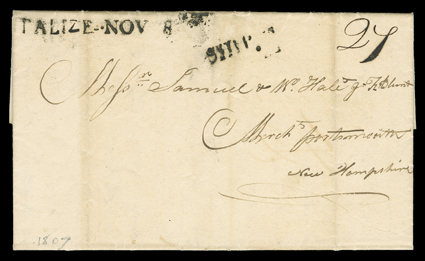 BALIZE-NOV 8
SHIP
27
Messrs. Samuel & Wm. Hale
Merchts Portsmouth
New Hampshire
1807